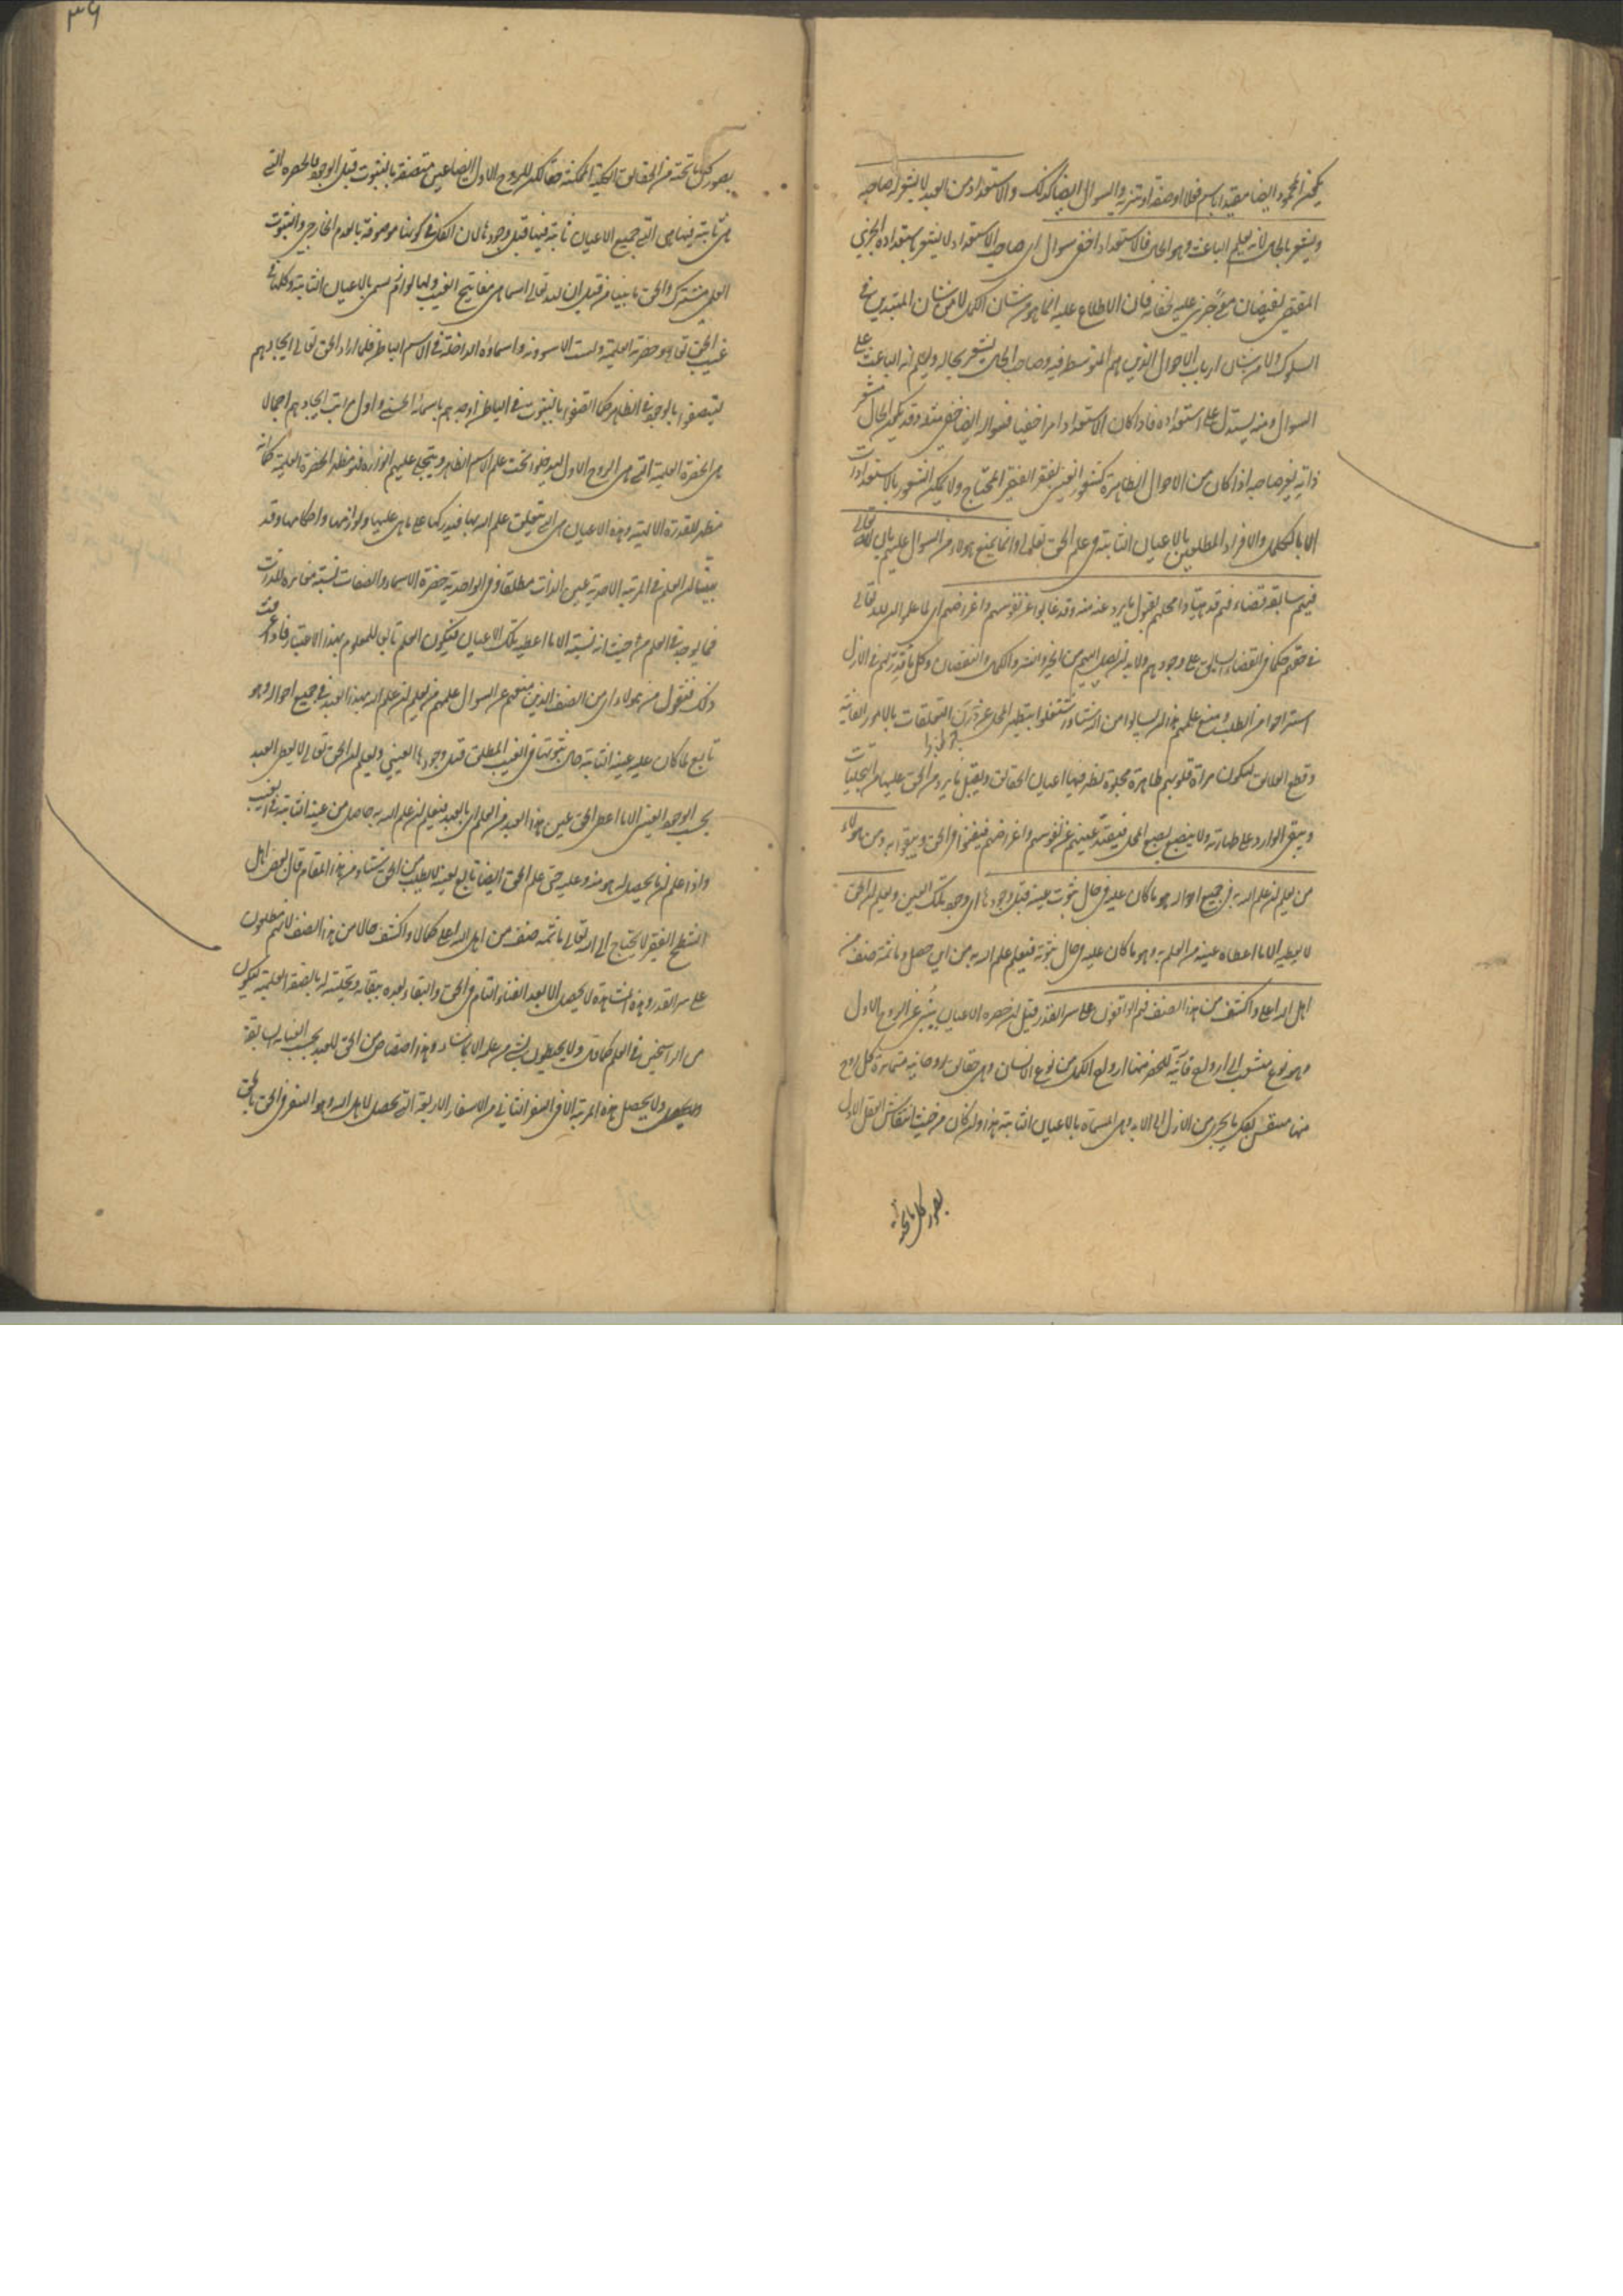 يكون المحمود ايضا مقيدا باسم فعل او صفة او تنزيه والسوال ايضا كذلك والاستعداد من العبد لا يشعر به صاحبه
ويشعر بالحال لانه يعلم الباعث وهو الحال فالاستعداد اخفى سوال اى صاحب الاستعداد لا يشعر باستعداده الجزئى
المقتضى لفيضان معنى جزئى عليه لخفائه فان الاطلاع عليه انما هو من شان الكمل لا من شان المبتدين فى
السلوك ولا من شان ارباب الاحوال الذين هم المتوسط فيه وصاحب الحال يشعر بحاله ويعلم انه الباعث على
السوال ومنه يستدل على استعداده فاذا كان الاستعداد امرا خفيا فسواله ايضا خفى مثله وقد يكون الحال مشعر
ذاته لغير صاحبه اذا كان من الاحوال الظاهرة كشعور الغنى بفقر الفقير المحتاج ولا يمكن الشعور بالاستعدادات
الا بالكمل والافراد المطلعين بالاعيان الثابتة فى علم الحق تعالى وانما يمنع هولاء من السوال علمهم بان لله تعالى
فيهم سابقة قضاء فهم قد هيئوا محلهم لقبول ما يرد عنه منه وقد غابوا عن نفوسهم واغراضهم اى لما علموا ان لله تعالى
فى حقهم حكما فى القضاء السابق على وجودهم ولابد ان يصل اليهم من الخير والشر والكمال والنقصان وكل ما قدر لهم فى الازل
استراحوا من الطلب ومنع علمهم هذا ان يسالوا من الله شيئا واشتغلوا بتطهير المحل عن درن التعلقات بالامور الفانية
وقطع العلائق ليكون مراة قلوبهم طاهرة مجلوة يظهر فيها اعيان الحقائق ويقبل ما يرد من الحق عليها من التجليات
ويبقى الوارد على طهارته ولا ينصبغ بصبغ المحل فيفنى عينهم عن نفوسهم واغراضهم فيفنوا فى الحق ويبقوا به ومن هولاء
من يعلم ان علم الله به فى جميع احواله هو ما كان عليه فى حال ثبوت عينه قبل وجودها اى وجود تلك العين ويعلم ان الحق
لا يعطيه الا ما اعطاه عينه من العلم به وهو ما كان عليه فى حال ثبوته فيعلم علم الله به من اين حصل وما ثمة صنف من
اهل الله اعلى واكشف من هذا الصنف فهم الواقفون على سر القدر قيل ان حضرة الاعيان ينبئ عن الروح الاول
وهو نوع منشعب الى ارواح فائتة للحصر منها ارواح الكمل من نوع الانسان وهى حقائق روحانية متمايزة كل روح
منها منتقش بكل ما يجرى من الازل الى الابد وهى المسماة بالاعيان الثابتة هذا وان كان من حيث انتقاش العقل الاول
بصور كل ما تحته
٣٦
بصور كل ما تحته من الحقائق الكلية الممكنة حقا لكن للروح الاول ايضا عين متصفة بالثبوت قبل الوجود والحضرة التى
هى ثابتة فيها هى التى جميع الاعيان ثابتة فيها قبل وجودها لان الكل فى كونها موصوفة بالعدم الخارجى والثبوت
العلمى مشترك والحق ما بيناه من قبل ان لله تعالى اسما هى مفاتيح الغيب ولها لوازم تسمى بالاعيان الثابتة وكلها فى
غيب الحق تعالى وحضرته العلمية وليست الا شؤونه واسماؤه الداخلة فى الاسم الباطن فلما اراد الحق تعالى ايجادهم
ليتصفوا بالوجود فى الظاهر كما اتصفوا بالثبوت فى الباطن اوجدهم باسمائه الحسنى واول مراتب ايجادهم اجمالا
هى الحضرة العلمية التى هى الروح الاول ليدخلوا تحت حكم الاسم الظاهر ويتجلى عليهم انواره فهو مظهر الحضرة العلمية كما انه
مظهر للقدرة الالهية وهذه الاعيان هى التى تتعلق علم الله بها فيدركها على ما هى عليها ولوازمها واحكامها وقد
بينا ان العلم فى المرتبة الاحدية عين الذات مطلقا وفى الواحدية حضرة الاسماء والصفات نسبة مغايرة للذات
فما يوجد فى العلم من حيث انه نسبة الا ما اعطيه تلك الاعيان فيكون العلم تابعا للمعلوم بهذا الاعتبار فاذا عرفت
ذلك فنقول من هولاء اى من الصنف الذين منعهم عن السوال علمهم من يعلم ان علم الله بهذا العبد فى جميع احواله وهو
تابع لما كان عليه عينه الثابتة حال ثبوتها فى الغيب المطلق قبل وجودها العينى ويعلم ان الحق تعالى لا يعطى العبد
بحسب الوجود العينى الا ما اعطى الحق عين هذا العبد من العلم اى بالعبد فيعلم ان علم الله به حاصل من عينه الثابتة فى الغيب
واذا علم ان ما يحصل له هو منه وعليه حتى علم الحق ايضا تابع لعينه لا يطلب من الحق شيئا ومن هذا المقام قال بعض اهل
الشطح الفقير لا يحتاج الى الله تعالى ما ثمة صنف من اهل الله اعلى كمالا واكشف حالا من هذا الصنف لانهم مطلعون
على سر القدر وهذه المشاهدة لا يحصل الا بعد الفناء التام فى الحق والبقاء بعده ببقائه وتجليته له بالصفة العلمية ليكون
من الراسخين فى العلم كما قال ولا يحيطون بشئ من علمه الا بما شاء وهذا اختصاص من الحق للعبد بحسب العناية السابقة
ولا يحصل هذه المرتبة الا فى السفر الثانى من الاسفار الاربعة التى تحصل لاهل الله وهو السفر فى الحق بالحق